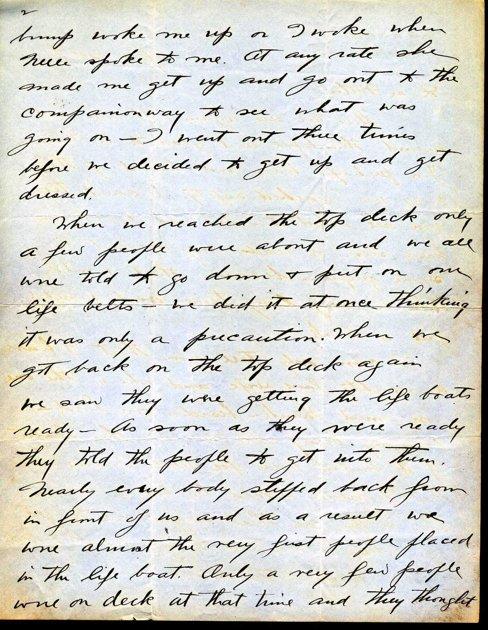 2
bump woke me up or I woke when
Nelle spoke to me. At any rate she
made me get up and go out to the
companionway to see what was
going on – I went out three times
before we decided to get up and get
dressed.
When we reached the top deck only
a few people were about and we all
were told to go down & put on our
life belts – we did it at once thinking
it was only a precaution. When we
got back on the top deck again
we saw they were getting the life boats
ready – As soon as they were ready
they told the people to get into them.
Nearly every body stepped back from
in front of us and as a result we
were almost the very first people placed
in the life boat. Only a very few people
were on deck at that time and they thought